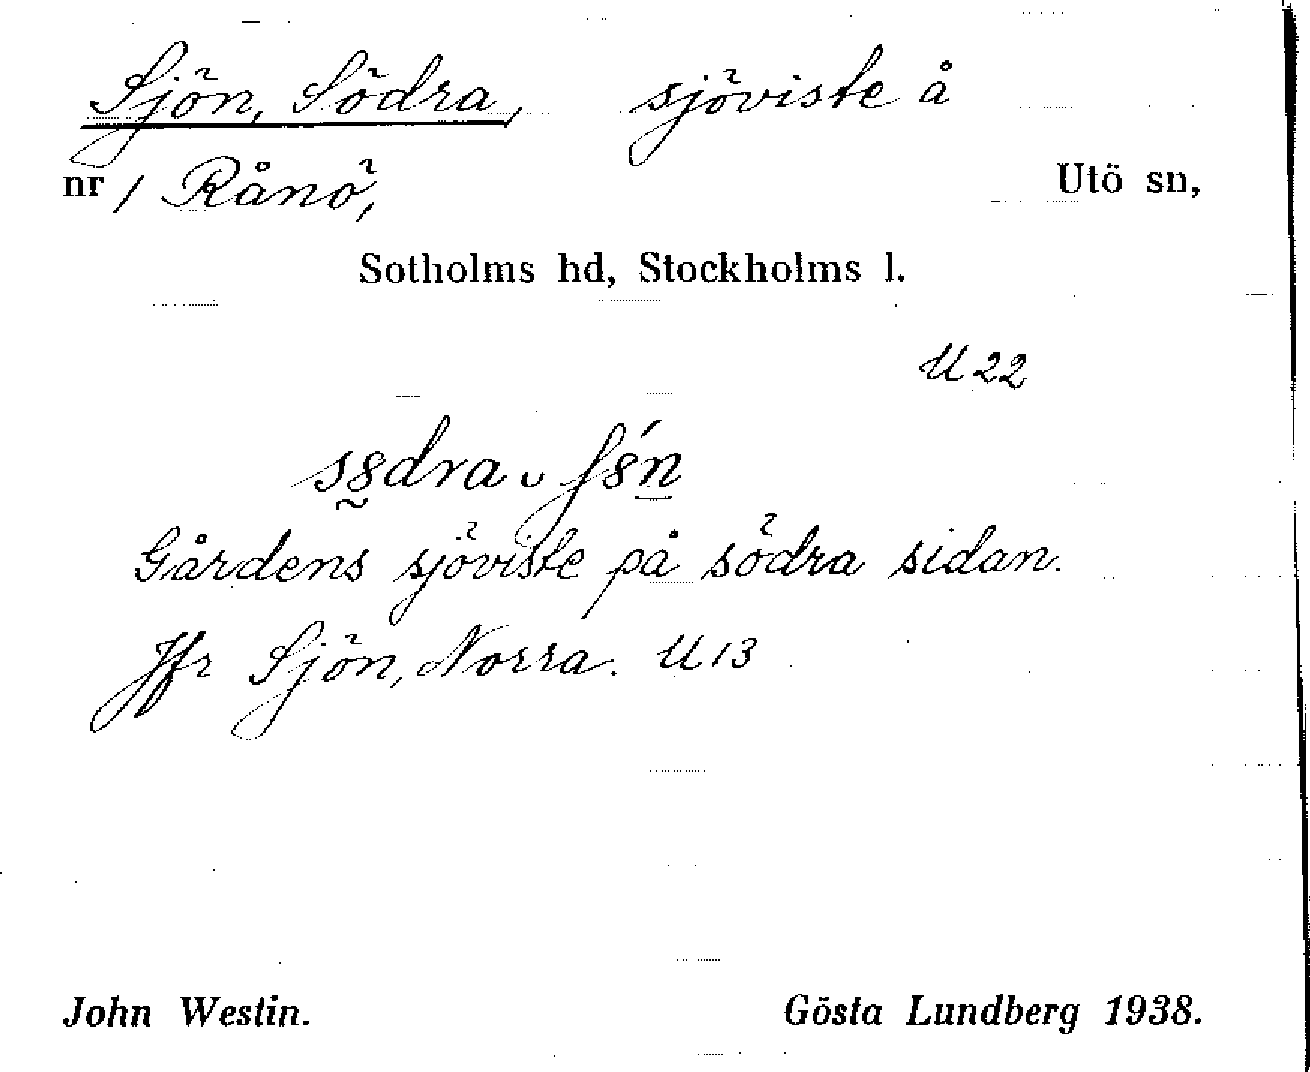 Sjön, Södra, sjöviste å
nr 1 Rånö, Utö sn,
Sotholms hd, Stockholms l.
U 22
Gårdens sjöviste på södra sidan.
Jfr Sjön, Norra. U 13
John Westin. Gösta Lundberg 1938.